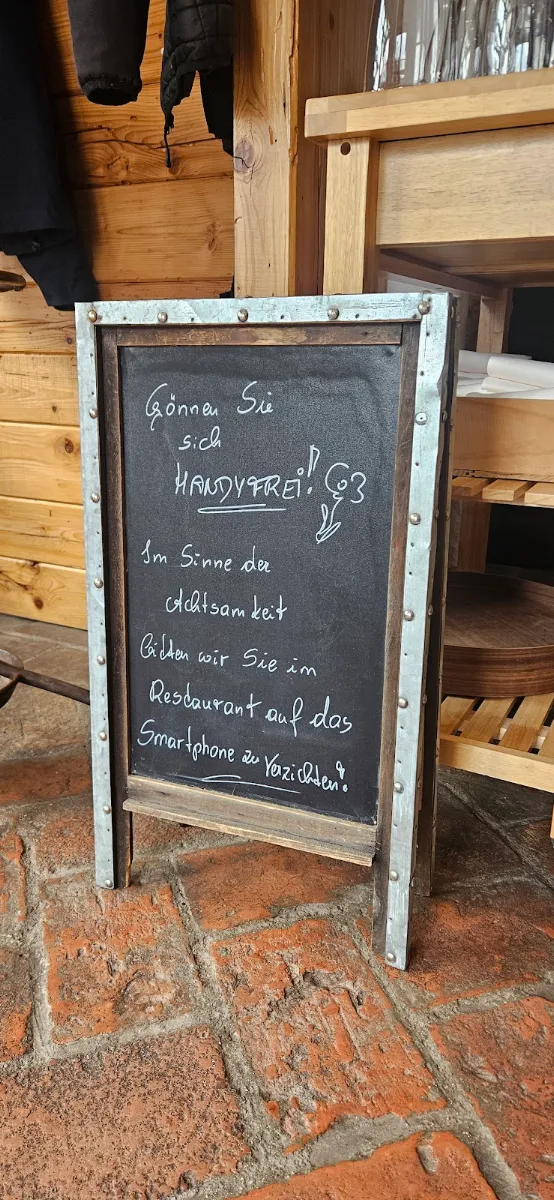 Gönnen Sie
sich
HANDYFREI!
Im Sinne der
Achtsamkeit
bitten wir Sie im
Restaurant auf das
Smartphone zu Verzichten!